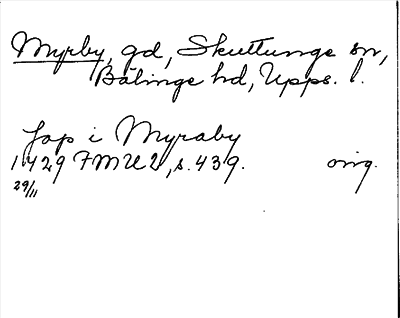 Myrby, gd, Skuttunge sn,
Bälinge hd, Upps. l.
Jap i Myraby
1429 FMU 2, s. 439. orig.
29/11